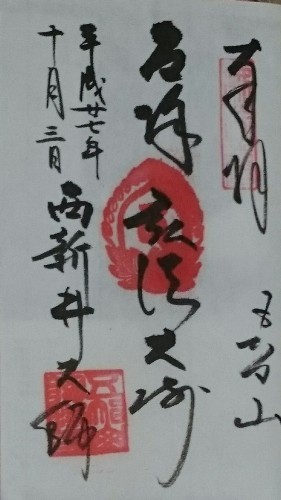 奉拝
五智山
厄除 弘法大師
西新井大師
平成廿七年
十月三日